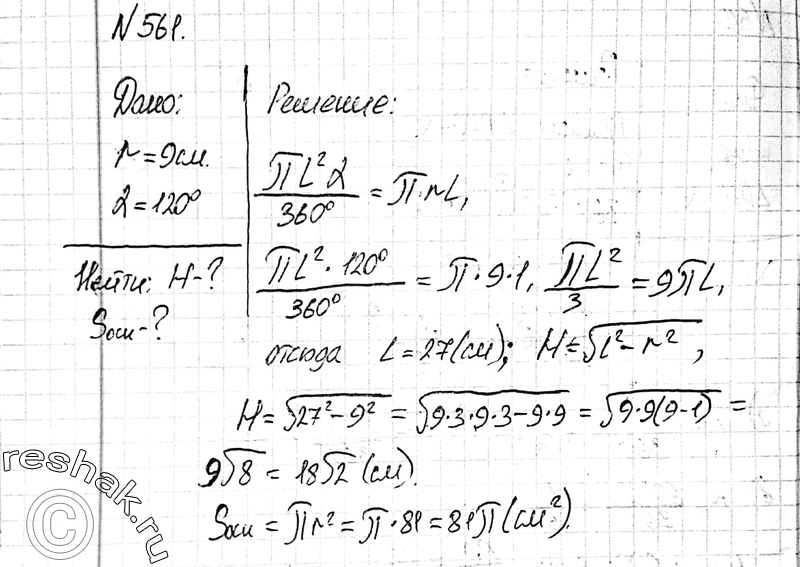 № 561.
Дано:
r = 9см.
α = 120°
Найти: H - ?
Sосн - ?
Решение:
πL²α/360° = π·rL,
πL²·120°/360° = π·9·l, πL²/3 = 9πL,
отсюда L = 27 (см); H = √(l² - r²),
H = √(27² - 9²) = √(9·3·9·3 - 9·9) = √(9·9(9-1)) =
9√8 = 18√2 (см).
Sосн = πr² = π·81 = 81π (см²).
reshak.ru
©